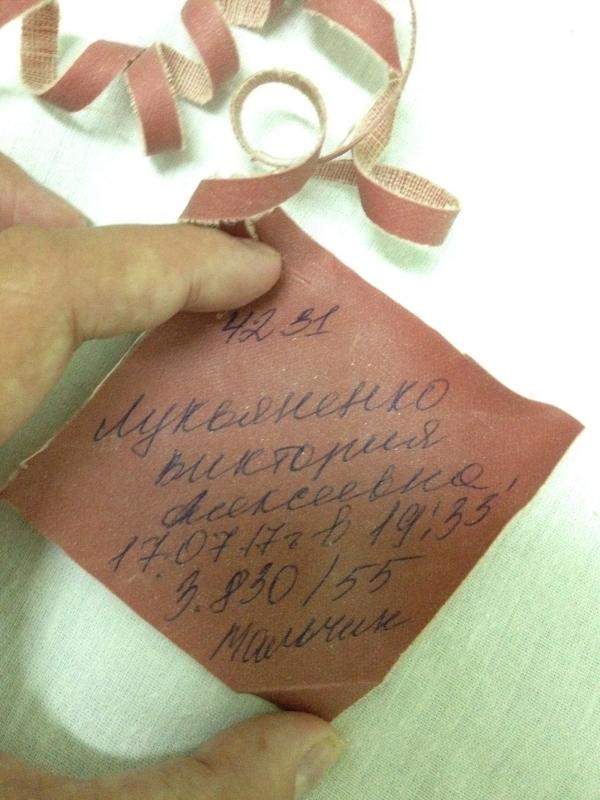 4231
Лукьяненко
Виктория
Алексеевна
17.07.17г в 19:35
3.830/55
Мальчик